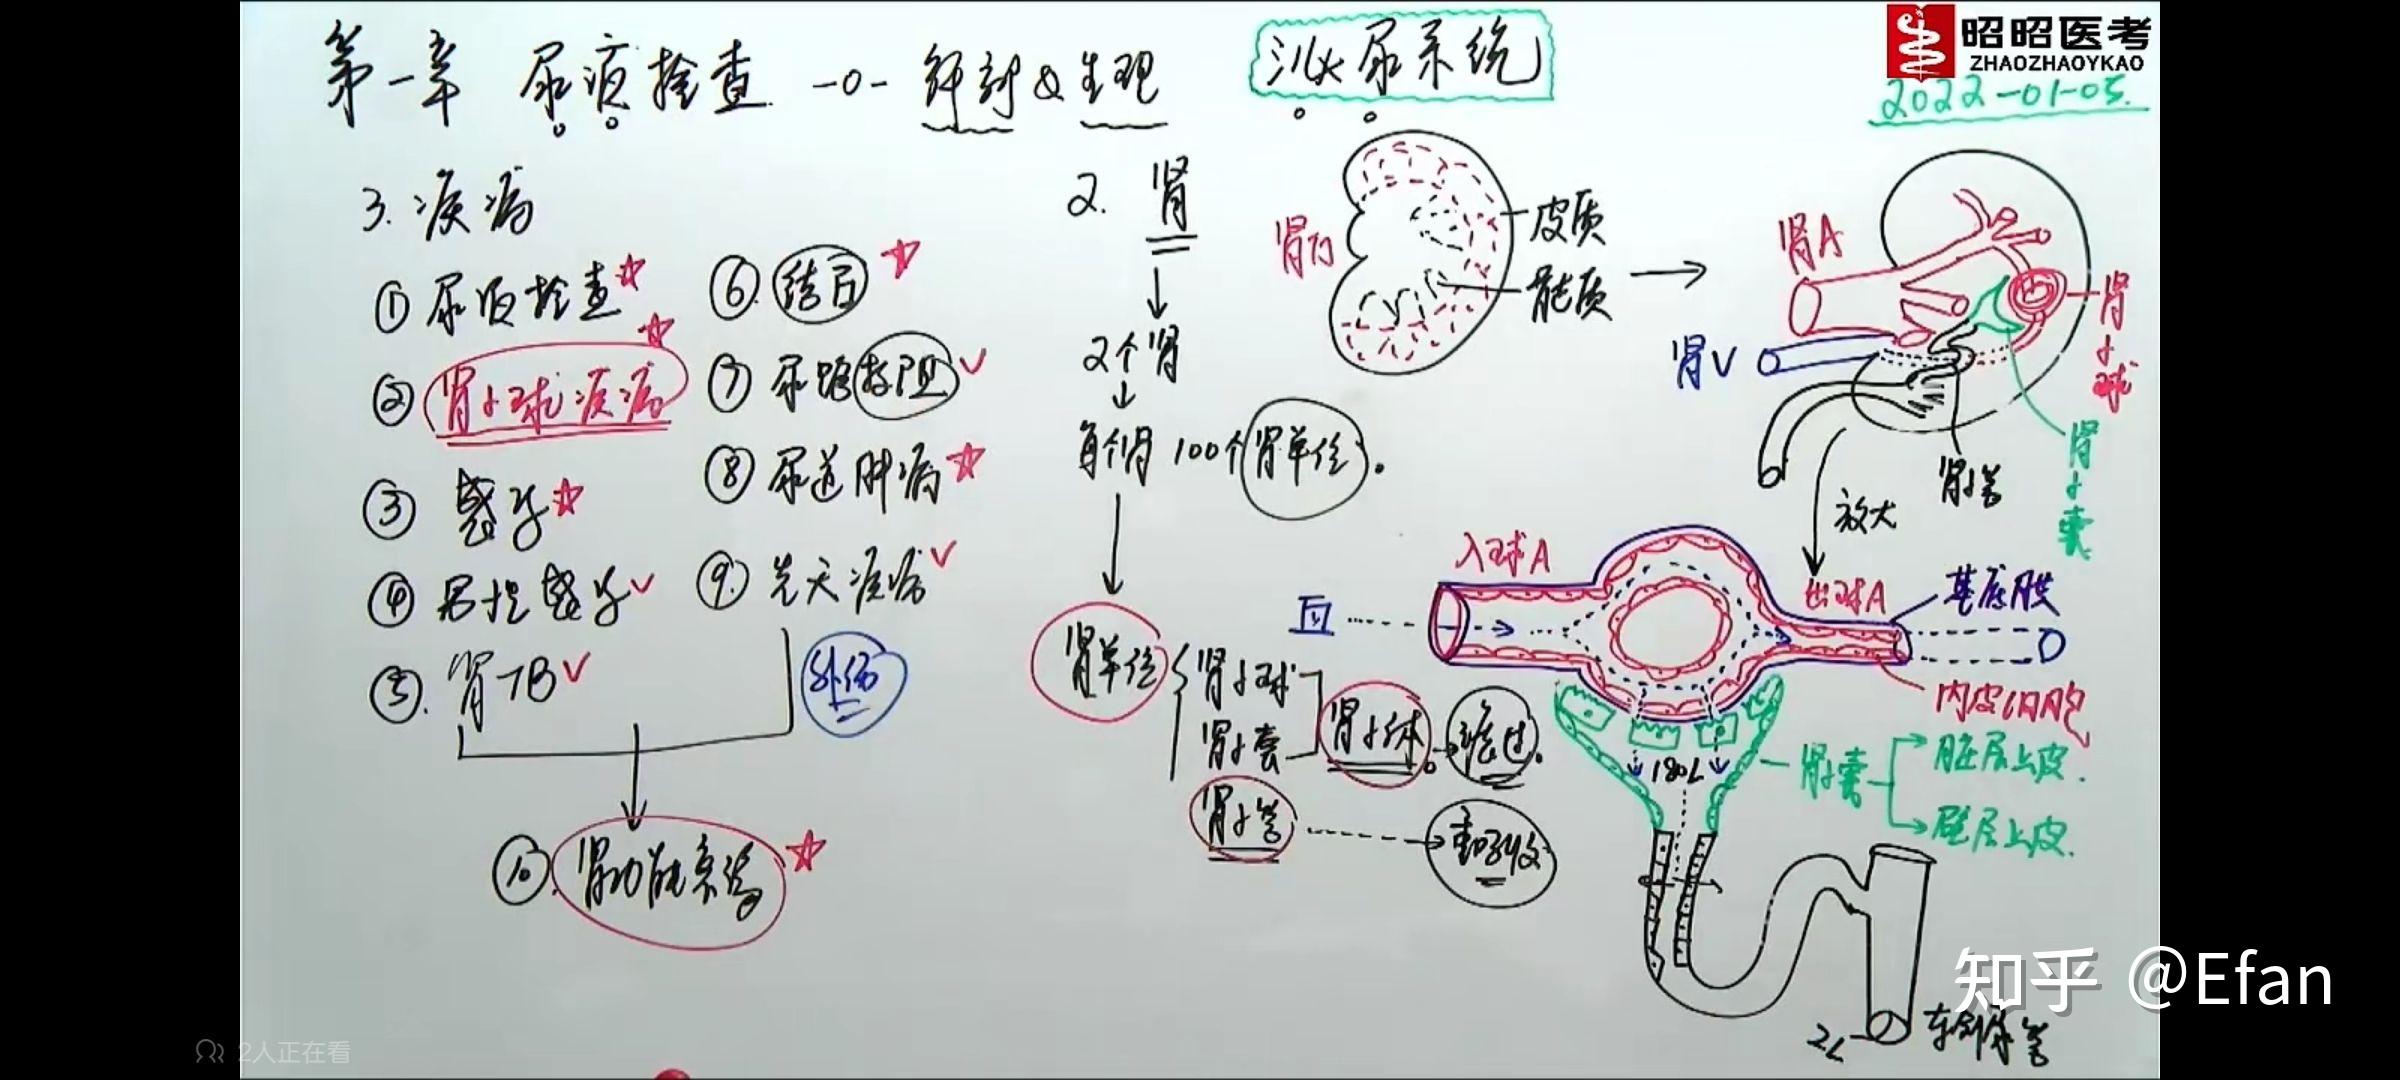 第一章 尿液检查 -0- 解剖&生理
泌尿系统
昭昭医考
ZHAOZHAOYKAO
2022-01-05.
3. 疾病
① 尿液检查☆
② 肾小球疾病☆
③ 感染☆
④ 男性感染✓
⑤. 肾TB✓
⑥. 结石☆
⑦ 尿路梗阻✓
⑧ 尿道肿瘤☆
⑨. 先天疾病✓
外伤
⑩. 肾功能
☆
2. 肾
2个肾
每个肾 100个肾单位.
肾单位
肾小球
肾小囊
肾小体
滤过.
肾小管
重吸收
肾门
皮质
髓质
肾A
肾V
肾小球
肾小囊
肾小管
放大
入球A
出球A
基底膜
血
内皮细胞
180L
肾小囊
脏层上皮.
壁层上皮.
2L
知乎 @Efan
2人正在看